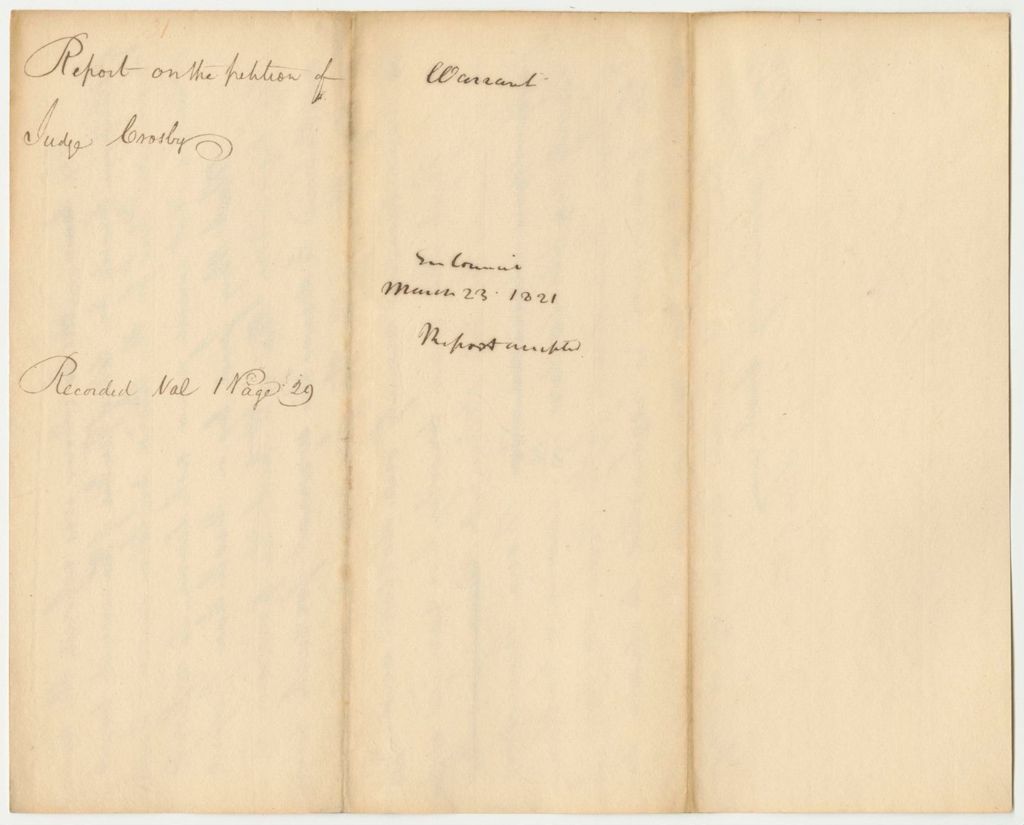 Report on the petition of
Judge Crosby
Recorded Vol 1 Page 29
Warrant
In Council
March 23 1821
Report accepted